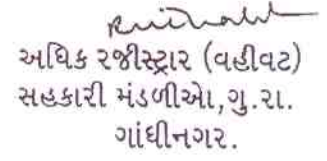 અધિક રજીસ્ટ્રાર (વહીવટ)
સહકારી મંડળીઓ,ગુ.રા.
ગાંધીનગર.